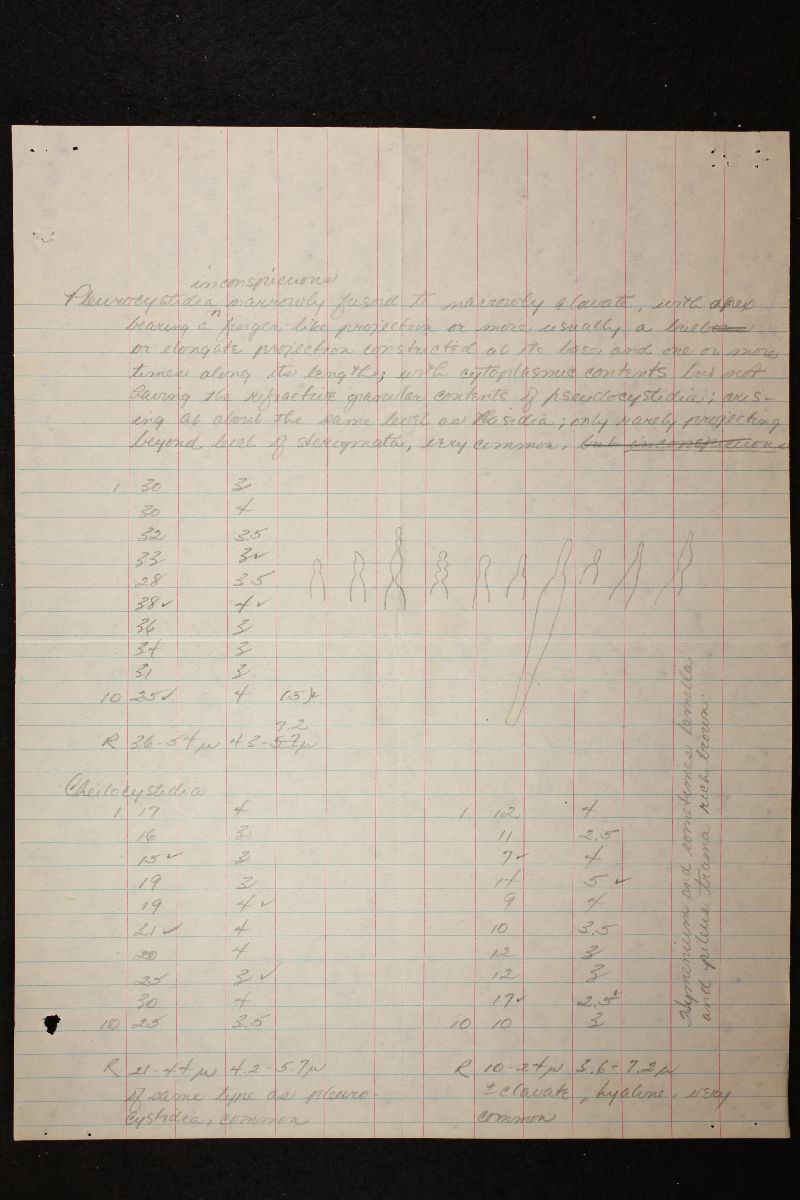 inconspicuous
Pleurocystidia narrowly fusoid to narrowly clavate, with apex
bearing a n finger-like projection or more usually a bulb
or elongate projection constructed at its base and one or more
times along its length; with cytoplasmic contents but not
having the refractive granular contents of pseudocystidia; aris-
ing at about the same level as basidia; only rarely projecting
beyond level of sterigmata, very common, but inconspicuous
1. 30 3
30 4
32 3.5
33 3✓
28 3.5
38✓ 4✓
36 3
34 3
31 3
10 25✓ 4 (5)✓
7.2
R 36-54µ 4.3-5.7µ
Cheilocystidia
1. 17 4 1. 12 4
16 3 11 2.5
15✓ 3 7✓ 4
19 3 14 5✓
19 4✓ 9 4
21✓ 4 10 3.5
20 4 12 3
25 3✓ 12 3
30 4 17✓ 2.5✓
10 25 3.5 10 10 3
R 21-44µ 4.2-5.7µ R 10-24µ 3.6-7.2µ
of same type as pleuro- ± clavate, hyaline, very
cystidia, common common
Hymenium and sometimes lamella
and pileus trama rich brown.